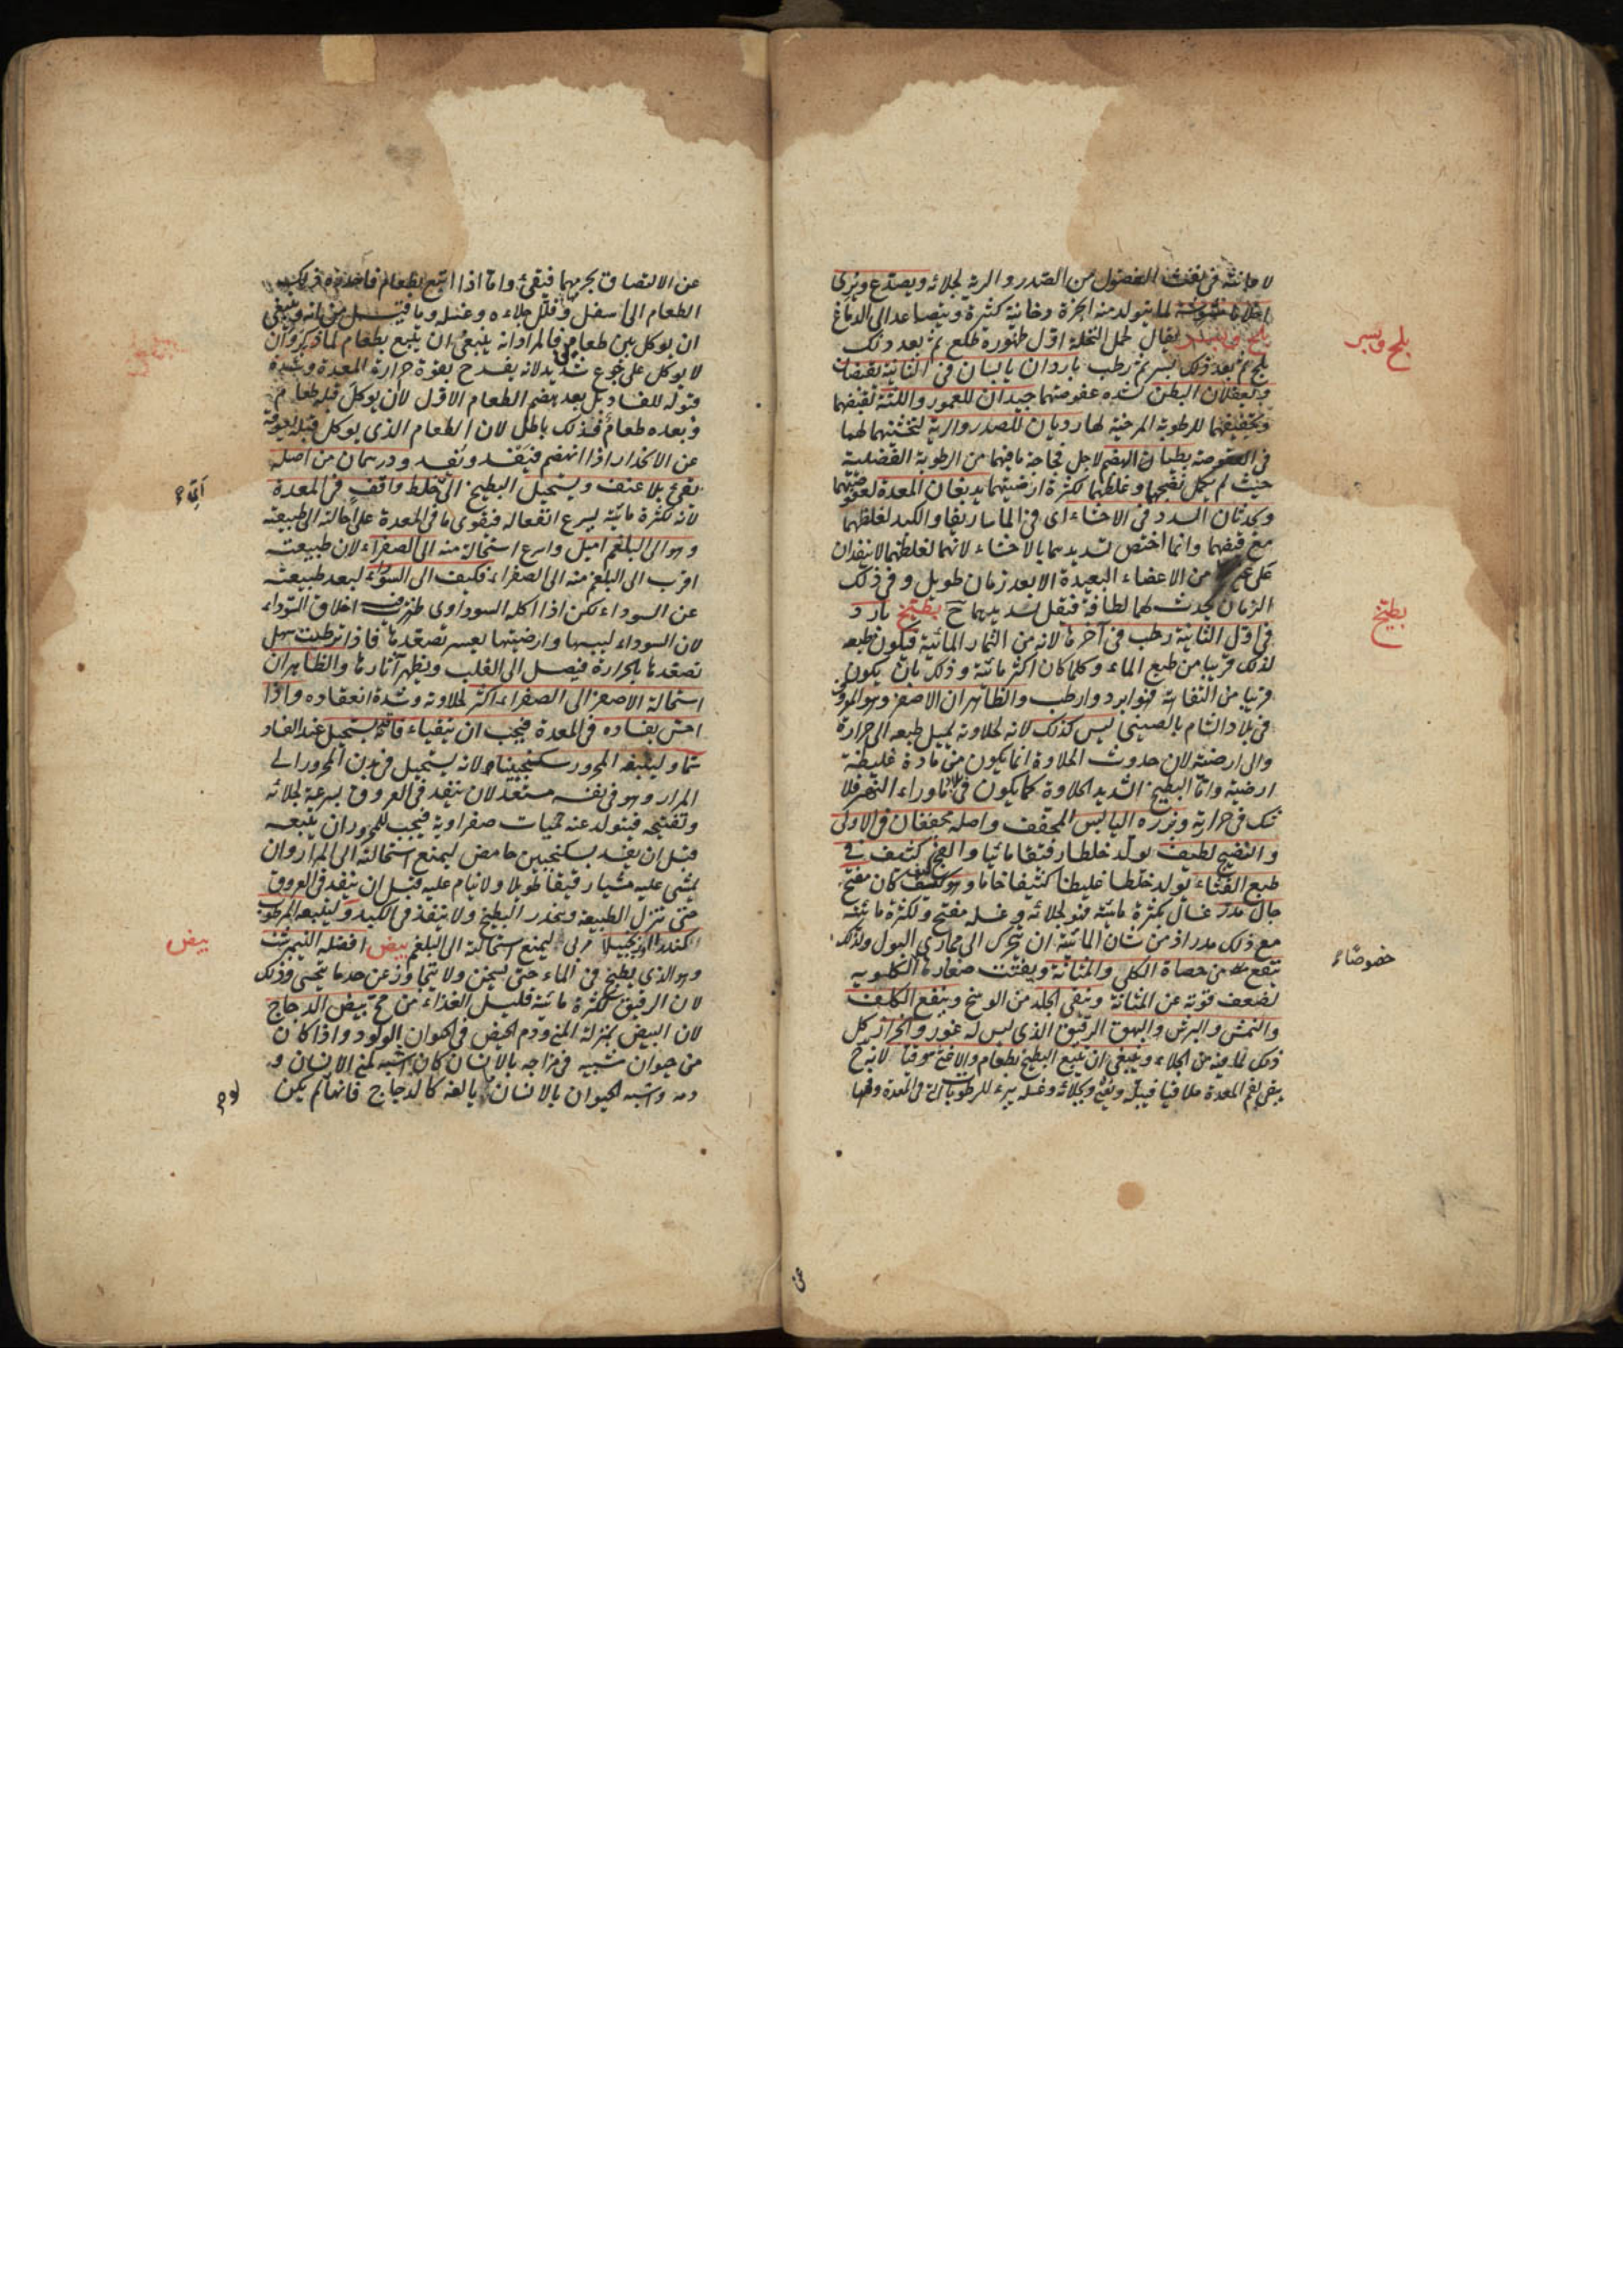 لاعانته في نفث الفضول من الصدر والرية لجلائه ويصدع ويرى
لما يتولد منه ابخرة دخانية كثيرة ويتصاعد الى الدماغ
بلح وبسر يقال لحمل النخلة اول ظهوره طلع ثم بعد ذلك
بلح ثم بعد ذلك بسر ثم رطب باردان يابسان في الثانية
ويعقلان البطن لشدة عفوصتهما جيدان للعمور واللثة لقبضهما
وتجفيفهما للرطوبة المرخية لها رديان للصدر والرية لتخشينهما لهما
في العفوصة بطيئان الهضم لاجل فجاجة ما فيهما من الرطوبة الفضلية
حيث لم يكمل نضجها وغلظهما لكثرة ارضيتهما يدبغان المعدة لعفوصتهما
ويحدثان السدد في الاحشاء اى في الماساريقا والكبد لغلظهما
مع قبضهما وانما اختص تسديدهما بالاحشاء لانهما لغلظهما لا ينفذان
من الاعضاء البعيدة الا بعد زمان طويل وفي ذلك
الزمان يحدث لهما لطافة فيقل تسديدهما ح بطيخ بارد
في اول الثانية رطب في آخرها لانه من الثمار المائية فيكون طبعه
لذلك قريبا من طبع الماء وكلما كان اكثر مائية وذلك بان يكون
قريبا من التفاهة فهو ابرد وارطب والظاهر ان الاصفر وهو المعروف
في بلاد الشام بالصيني ليس كذلك لانه لحلاوته يميل طبعه الى حرارة
والى ارضية لان حدوث الحلاوة انما يكون من مادة غليظة
ارضية واما البطيخ الشديد الحلاوة كما يكون في ماوراء النهر فلا
شك في حرارته وبزره اليابس المجفف واصله مجففان في الاولى
والنضيج لطيف يولد خلطا رقيقا مائيا والفج كثيف في
طبع القثاء يولد خلطا غليظا كثيفا خاما وهو كيف كان مفتح
جال مدر غسال لكثرة مائيته فهو لجلائه وغسله مفتح ولكثرة مائيته
مع ذلك مدر اذ من شان المائية ان تتحرك الى مجارى البول ولذلك
ينفع من حصاة الكلى والمثانة ويفتت صغارها الكلوية
لضعف قوته عن المثانة وينقى الجلد من الوسخ وينفع الكلف
والنمش والبرش والبهق الرقيق الذى ليس له غور والحزاز كل
ذلك لما فيه من الجلاء وينبغى ان يتبع البطيخ بطعام والا غثى وقيا لانه ح
يبقى في فم المعدة ملاقيا
بلح وبسر
بطيخ
خصوصاء
عن الالتصاق بجرمها فيقئ واما اذا اتبع بطعام
الطعام الى اسفل وقلل جلاءه وغسله وما قيل من انه ينبغى
ان يوكل بين طعامين فالمراد انه ينبغى ان يتبع بطعام لما ذكر وان
لا يوكل على جوع شديد لانه يفسد ح بقوة حرارة المعدة وشدة
قبوله للفساد بل بعد هضم الطعام الاول لا ان يوكل قبله طعام
وبعده طعام فذلك باطل لان الطعام الذى يوكل قبله يعوقه
عن الانحدار اذا انهضم فيفسد ويفسد ودرهمان من اصله
يقئ بلا عنف ويستحيل البطيخ الى خلط وافق في المعدة
لانه لكثرة مائيته يسرع انفعاله فيقوى ما في المعدة على احالته الى طبيعته
وهو الى البلغم اميل واسرع استحالة منه الى الصفراء لان طبيعته
اقرب الى البلغم منه الى الصفراء فكيف الى السوداء لبعد طبيعته
عن السوداء لكن اذا اكله السوداوى ظهر فيه اخلاق السوداء
لان السوداء ليبسها وارضيتها يعسر تصعدها فاذا ترطبت سهل
تصعدها بالحرارة فيصل الى القلب ويظهر آثارها والظاهر ان
استحالة الاصفر الى الصفراء اكثر لحلاوته وشدة انعقاده واذا
احس بفساده في المعدة فيجب ان يتقياء فانه يستحيل عند الفساد
سما وليتبعه المحرور سكنجبينا لانه يستحيل في بدن المحرور الى
المرار وهو في نفسه مستعد لان ينفذ في العروق بسرعة لجلائه
وتفتيحه فيتولد عنه حميات صفراوية فيجب للمحرور ان يتبعه
قبل ان يفسد بسكنجبين حامض ليمنع استحالته الى المرار وان
يمشى عليه مشيا رقيقا طويلا ولا ينام عليه قبل ان ينفذ في العروق
حتى تنزل الطبيعة وينحدر البطيخ ولا ينفذ في الكبد وليتبعه المرطوب
الكندر او زنجبيلا مربى ليمنع استحالته الى البلغم بيض افضله النيمرشت
وهو الذى يطبخ في الماء حتى يسخن ولا يتجاوز عن حد ما يتحسى وذلك
لان الرقيق لكثرة مائيته قليل الغذاء من مح بيض الدجاج
لان البيض بمنزلة المنى ودم الحيض في الحيوان الولود واذا كان
من حيوان شبيه في مزاجه بالانسان كان اشبه بمنى الانسان و
دمه واشبه الحيوان بالانسان ما يالفه كالدجاج فانها لم يكن
بيض